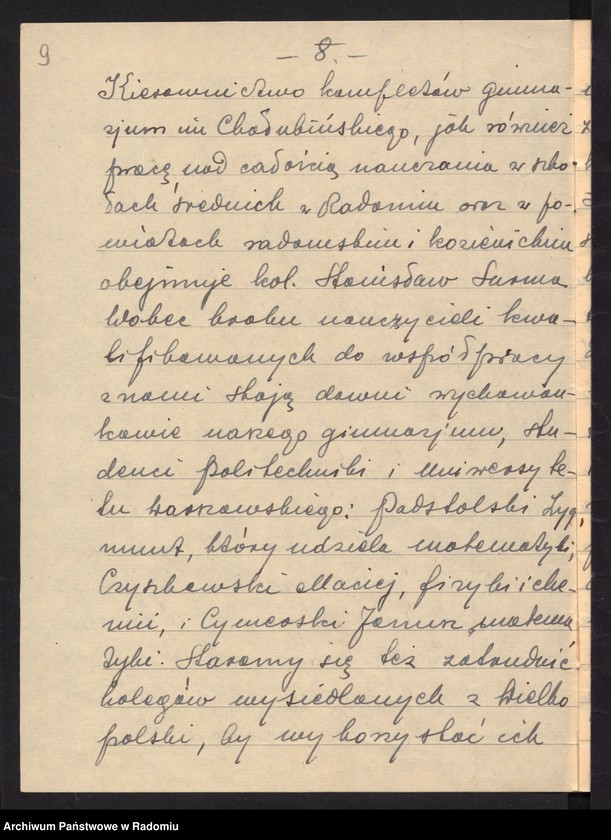 9
- 8. -
Kierownictwo kompletów gimna-
zjum im Chałubińskiego, jak również
pracę nad całością nauczania w szko-
łach średnich w Radomiu oraz w po-
wiatach radomskim i kozienickim
obejmuje kol. Stanisław Surma
Wobec braku nauczycieli kwa-
lifikowanych do współpracy
z nami stają dawni wychowan-
kowie naszego gimnazjum, stu-
denci Politechniki i Uniwersyte-
tu Warszawskiego: Podstolski Zyg
munt, który udziela matematyki,
Czyszkowski Maciej, fizyki i che-
mii, i Janusz matema
tyki. Staramy się też zatrudnić
kolegów wysiedlonych z Wielko
polski, by wykorzystać ich
Archiwum Państwowe w Radomiu